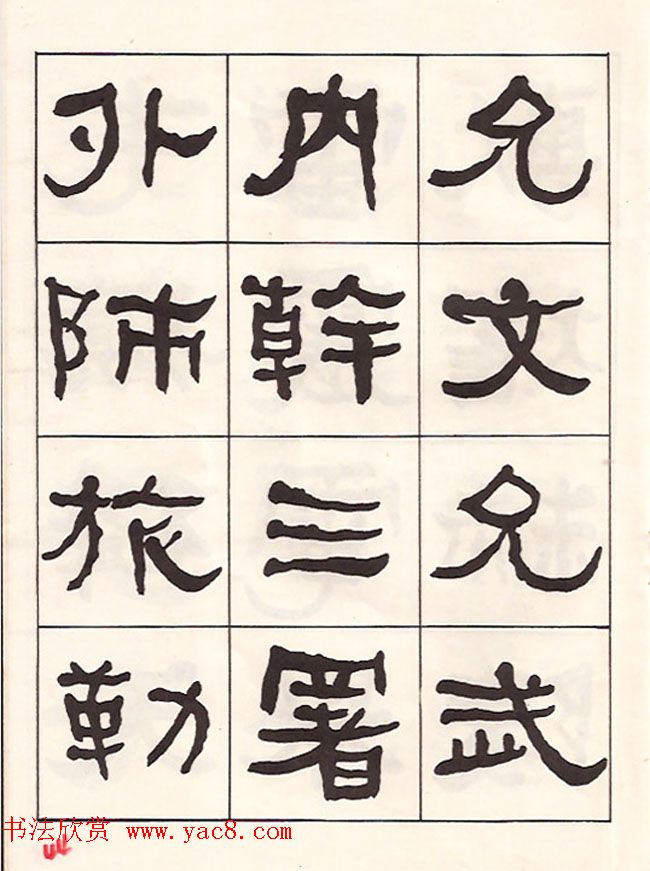 允文允武
内幹三署
外師旅勒
书法欣赏 www.yac8.com